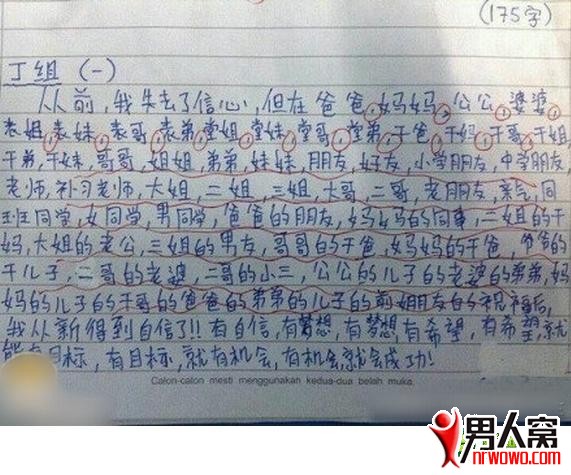 (175字)
丁组 (一)
从前，我失去了信心，但在爸爸，妈妈，公公，婆婆，
表姐，表妹，表哥，表弟，堂姐，堂妹，堂哥，堂弟，干爸，干妈，干哥，干姐，
干弟，干妹，哥哥，姐姐，弟弟，妹妹，朋友，好友，小学朋友，中学朋友，
老师，补习老师，大姐，二姐，三姐，大哥，二哥，老朋友，亲戚，同
班同学，女同学，男同学，爸爸的朋友，妈妈的同事，二姐的干
妈，大姐的老公，三姐的男友，哥哥的干爸，妈妈的干爸，爷爷的
干儿子，二哥的老婆，二哥的小三，公公的儿子的老婆的弟弟，妈
妈的儿子的干哥的爸爸的弟弟的儿子的前女朋友的祝福后，
我从新得到自信了!! 有自信，有梦想，有梦想，有希望，有希望，就
能有目标，有目标，就有机会，有机会，就会成功!
Calon-calon mesti menggunakan kedua-dua belah muka.
男人窝
nrwowo.com